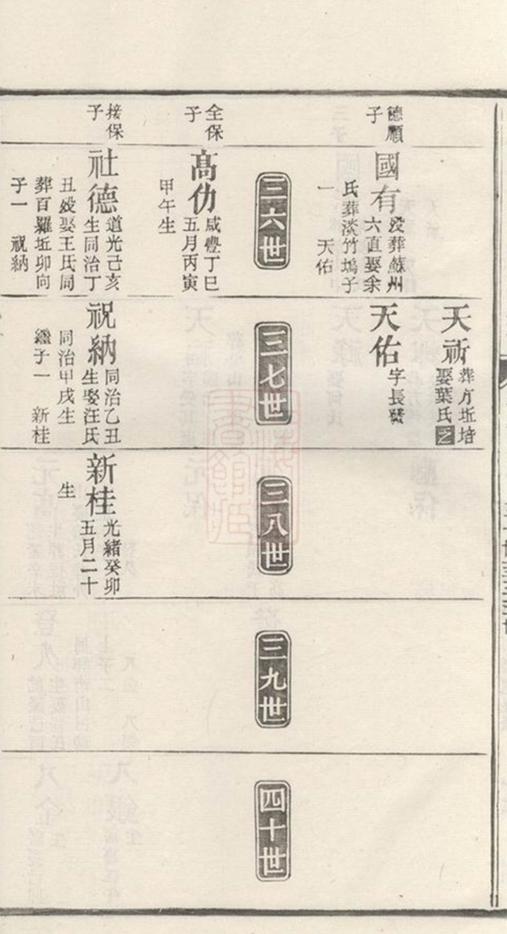 德願子
國有
沒葬蘇州
六直娶余
氏葬淡竹塢子
一 天佑
三六世
全保子
高仂
咸豐丁巳
五月丙寅
甲午生
接保子
社德
道光己亥
生同治丁
丑歿娶王氏同
葬百羅坵卯向
子一 祝納
天祈
葬方坵培
娶葉氏
天佑
字長發
三七世
祝納
同治乙丑
生娶汪氏
同治甲戌生
繼子一 新桂
三八世
新桂
光緒癸卯
五月二十
生
三九世
四十世